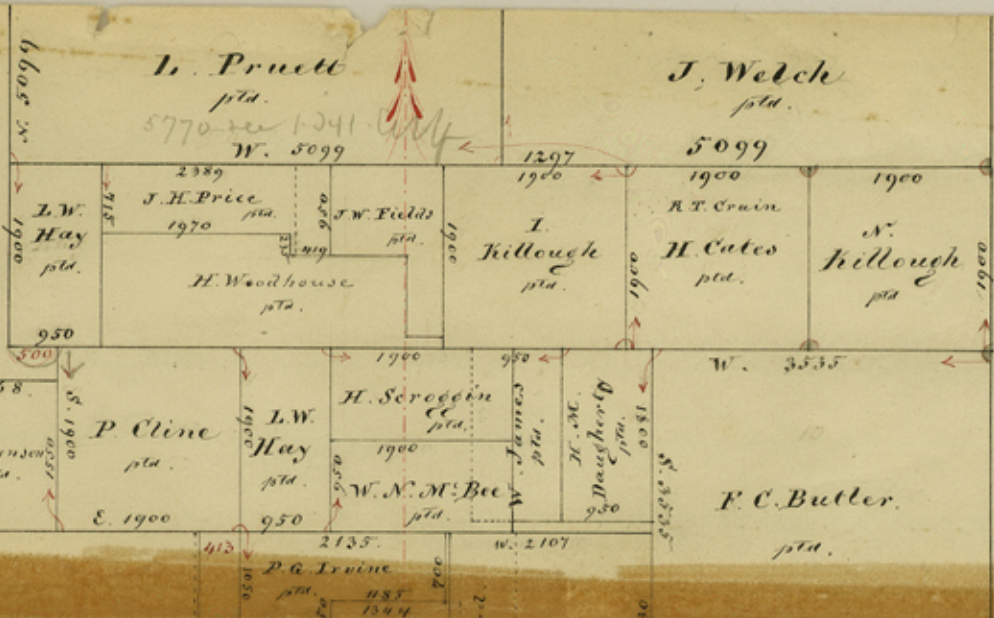 6605 N
L. Pruett
ptd.
W. 5099
J. Welch
ptd.
5099
1297
L.W.
Hay
ptd.
1900
950
2389
715
J.H. Price
ptd.
1970
950
J.W. Fields
ptd.
419
H. Woodhouse
ptd.
1900
1900
I.
Killough
ptd.
1900
1900
R.T. Crain
H. Cates
ptd.
1900
N.
Killough
ptd.
1900
500
S. 1900
P. Cline
ptd.
E. 1900
1550
1900
L.W.
Hay
ptd.
950
1900
H. Scroggin
ptd.
1900
950
W. N. McBee
ptd.
950
W. James
ptd.
H. M.
Daugherty
ptd.
950
1800
W. 3535
S. 3535
F. C. Butler.
ptd.
413
1050
2135.
P.G. Irvine
ptd.
1185
1344
700
W. 2107